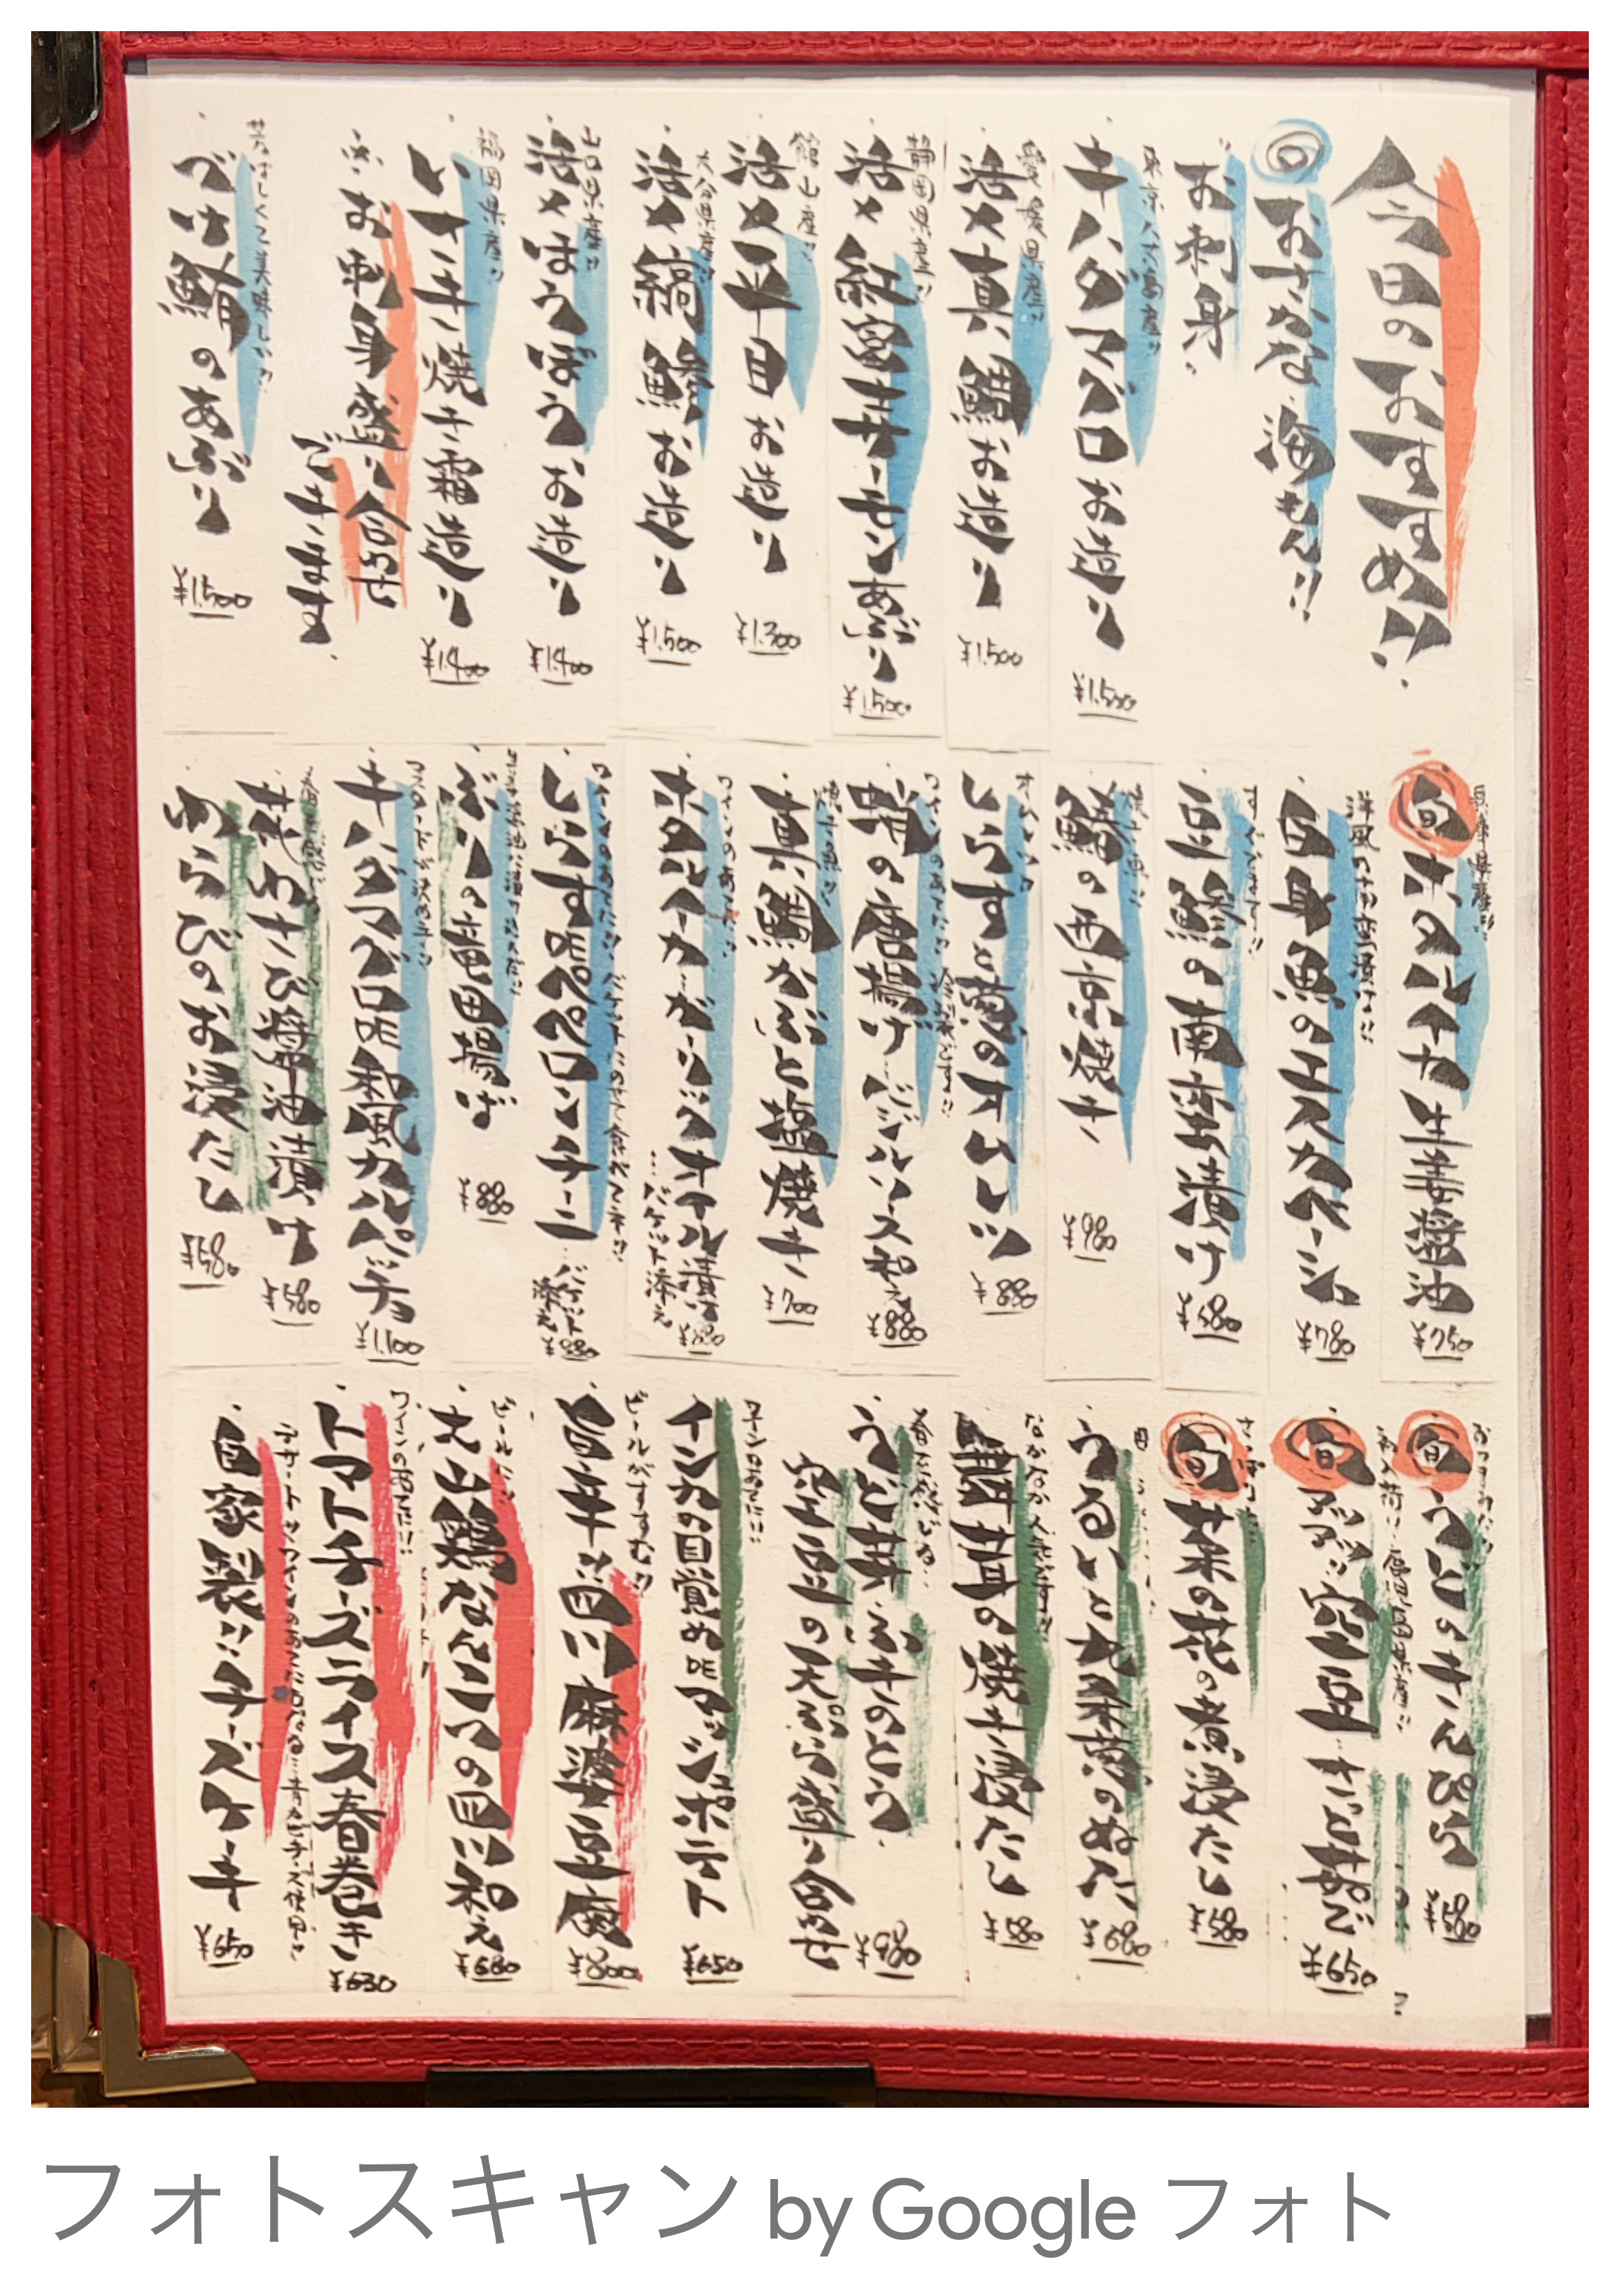 今日のおすすめ!!
おさかな・海もん!!
お刺身
東京八丈島産!!
キハダマグロお造り
¥1.500
愛媛県産!!
活〆真鯛お造り
¥1.500
静岡県産!!
活〆紅富士サーモンあぶり
¥1.500
館山産!!
活〆平目お造り
¥1.300
大分県産!!
活〆縞鯵お造り
¥1.500
山口県産!!
活〆ほうぼうお造り
¥1.400
福岡県産!!
いさき焼き霜造り
¥1.400
お刺身盛り合わせ
できます
芳ばしくて美味しい!!
づけ鮪のあぶり
¥1.500
兵庫県産!!
旬 ホタルイカ生姜醤油
¥750
洋風の南蛮漬け!!
白身魚のエスカベーシュ
¥780
すぐでます!!
豆鯵の南蛮漬け
¥580
焼き魚!!
鰆の西京焼き
¥980
オムレツ
しらすと葱のオムレツ
¥880
ワインのあてに!!
蛸の唐揚げバジルソース和え
¥880
焼き魚!!
真鯛かぶと塩焼き
¥700
ワインのあてに!!
ホタルイカガーリックオイル漬け
…バケット添え
¥880
ワインのあてに!! バケットにのせて食べてネ!!
しらすDEペペロンチーニ
…バケット添え
¥880
ぶりの竜田揚げ
¥880
マスタードが決め手!!
キハダマグロDE和風カルパッチョ
¥1.100
花わさび醤油漬け
¥580
わらびのお浸たし
¥580
旬 うどのきんぴら
¥580
福岡県産!!
旬 空豆
¥650
旬 菜の花の煮浸たし
¥580
うるいと
¥680
なかなか人気です!!
舞茸の焼き浸たし
¥580
うど芽・ふきのとう・
空豆の天ぷら盛り合せ
¥980
ワインのあてに!!
インカの目覚めDEマッシュポテト
¥650
ビールがすすむ!!
旨辛!!四川麻婆豆腐
¥800
ビールに!!
大山鶏なんこつの四川和え
¥680
ワインのあてに!!
トマトチーズライス春巻き
¥630
デザートや、ワインのあてにもなる…青カビチーズ使用!!
自家製!!チーズケーキ
¥650
フォトスキャン by Google フォト